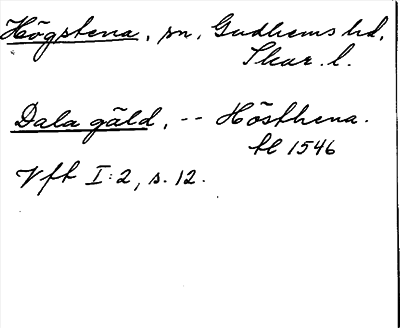 Högstena, sn, Gudhems hd,
Skar. l.
Dala gäld, -- Hösthena.
bl 1546
Vft I:2, s. 12.